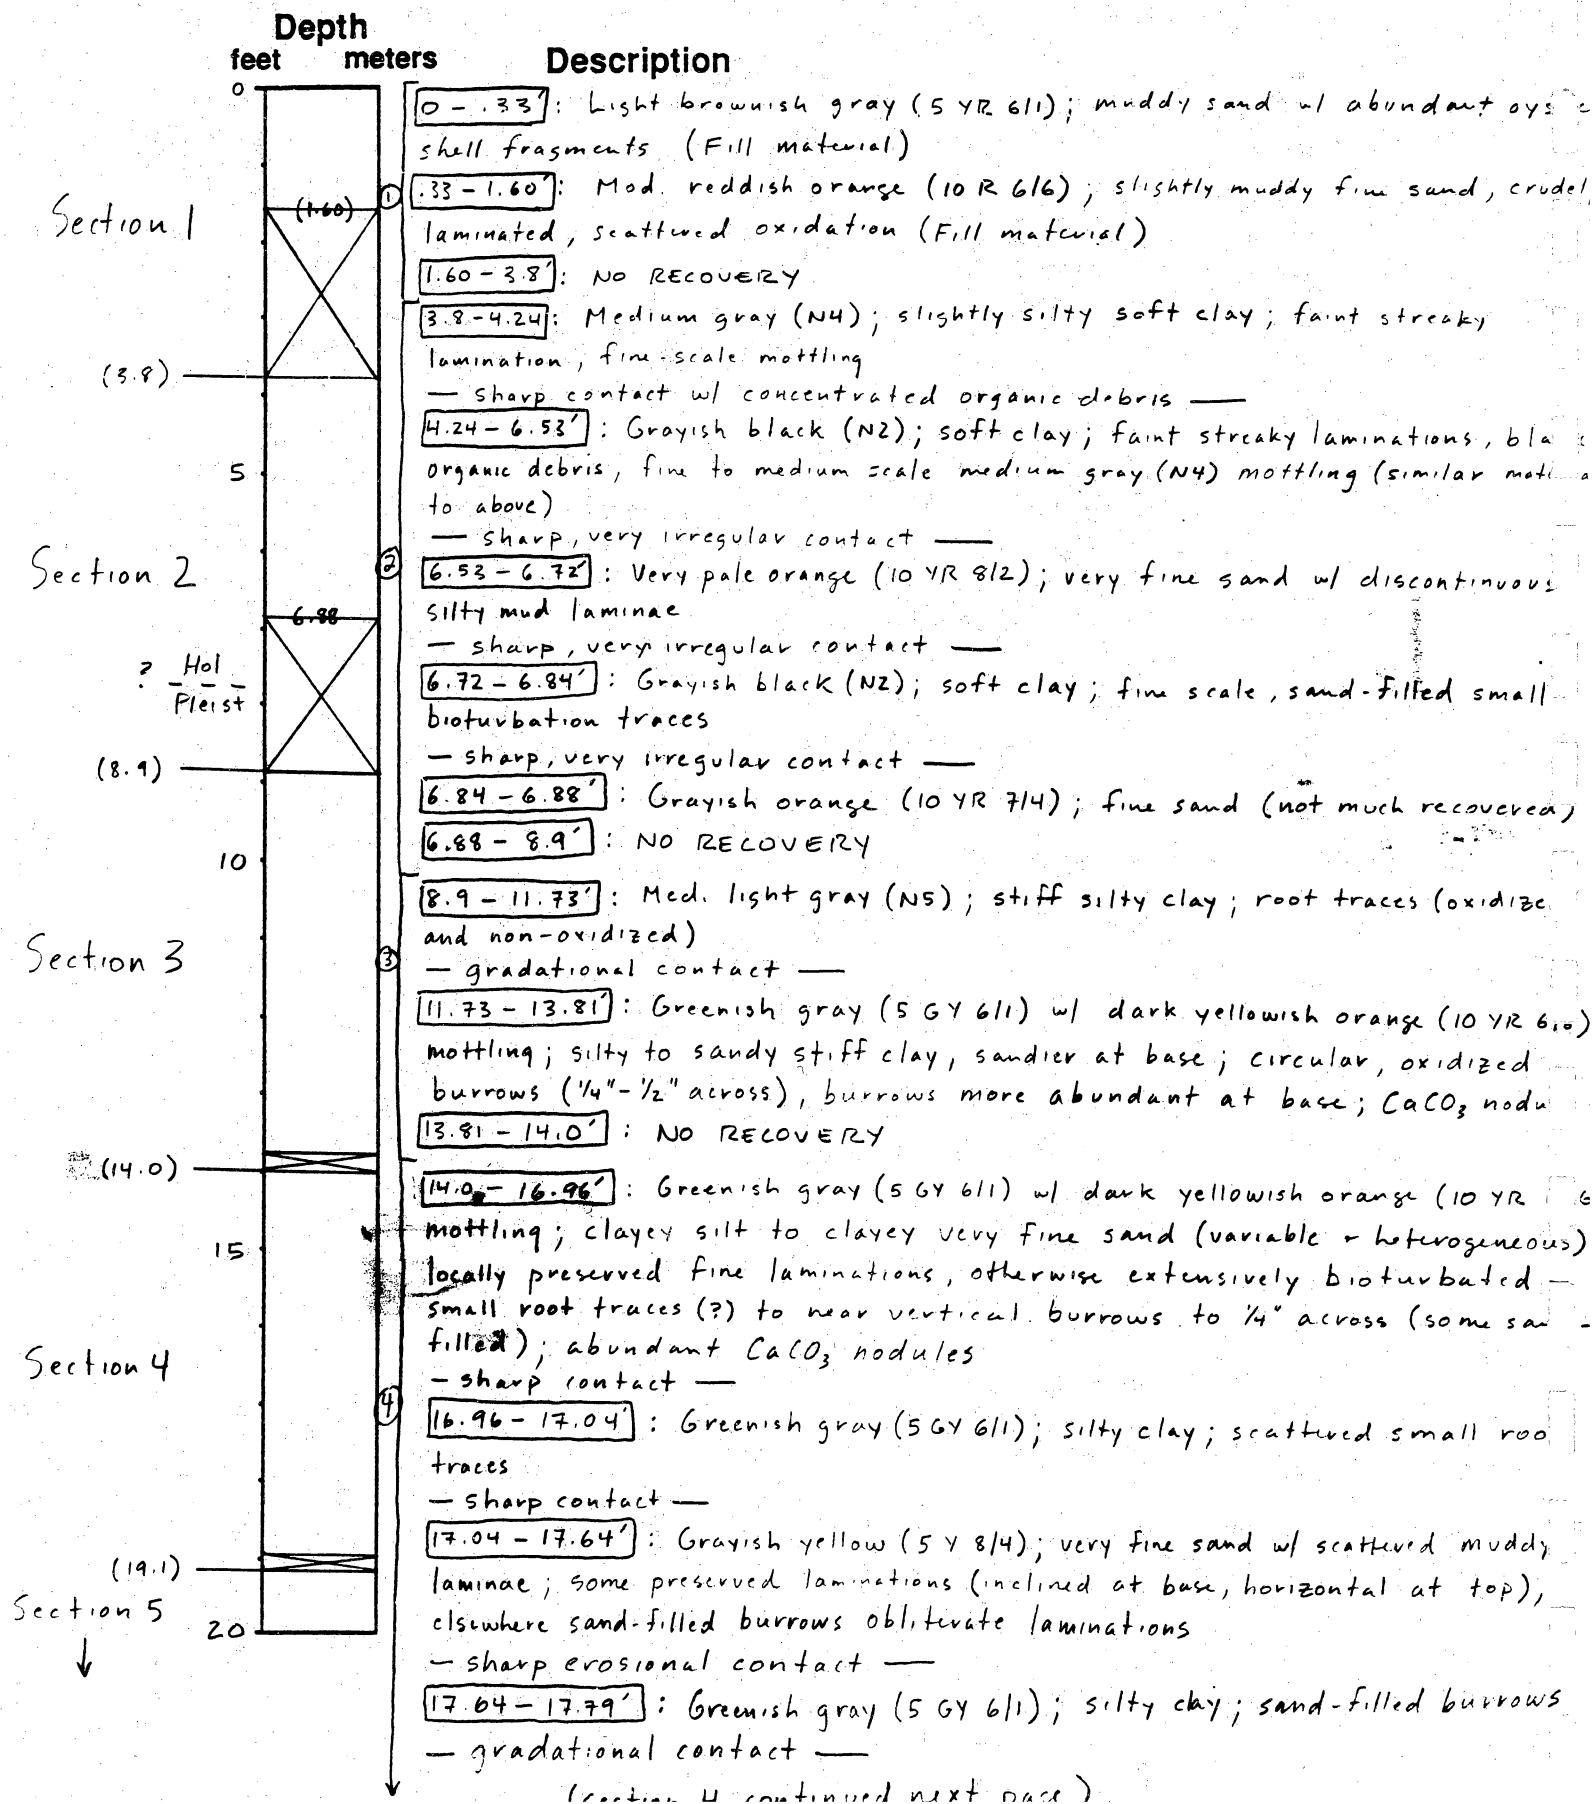 Depth
feet meters Description
0
0 - .33': Light brownish gray (5 YR 6/1); muddy sand w/ abundant
shell fragments (Fill material)
Section 1
(1.60)
1
.33 - 1.60': Mod. reddish orange (10 R 6/6); slightly muddy fine sand,
laminated, scattered oxidation (Fill material)
1.60 - 3.8': NO RECOVERY
3.8 - 4.24: Medium gray (N4); slightly silty soft clay; faint streaky
lamination, fine-scale mottling
(3.8)
— sharp contact w/ concentrated organic debris —
4.24 - 6.53': Grayish black (N2); soft clay; faint streaky laminations,
5
organic debris, fine to medium scale medium gray (N4) mottling (similar
to above)
— sharp, very irregular contact —
Section 2
2
6.53 - 6.72': Very pale orange (10 YR 8/2); very fine sand w/ discontinuous
silty mud laminae
6.88
— sharp, very irregular contact —
? Hol
Pleist
6.72 - 6.84': Grayish black (N2); soft clay; fine scale, sand-filled small
bioturbation traces
— sharp, very irregular contact —
(8.9)
6.84 - 6.88': Grayish orange (10 YR 7/4); fine sand (not much recovered)
6.88 - 8.9': NO RECOVERY
10
8.9 - 11.73': Med. light gray (N5); stiff silty clay; root traces
and non-oxidized)
Section 3
3
— gradational contact —
11.73 - 13.81': Greenish gray (5 GY 6/1) w/ dark yellowish orange (10 YR
mottling; silty to sandy stiff clay, sandier at base; circular, oxidized
burrows (1/4"-1/2" across), burrows more abundant at base; CaCO3
13.81 - 14.0': NO RECOVERY
(14.0)
14.0 - 16.96': Greenish gray (5 GY 6/1) w/ dark yellowish orange (10 YR
mottling; clayey silt to clayey very fine sand (variable + heterogeneous)
15
locally preserved fine laminations, otherwise extensively bioturbated —
small root traces (?) to near vertical burrows to 1/4" across (some
filled); abundant CaCO3 nodules
Section 4
— sharp contact —
4
16.96 - 17.04': Greenish gray (5 GY 6/1); silty clay; scattered small
traces
— sharp contact —
17.04 - 17.64': Grayish yellow (5 Y 8/4); very fine sand w/ scattered muddy
(19.1)
laminae; some preserved laminations (inclined at base, horizontal at top),
Section 5
20
elsewhere sand-filled burrows obliterate laminations
— sharp erosional contact —
17.64 - 17.79': Greenish gray (5 GY 6/1); silty clay; sand-filled burrows
— gradational contact —
(section 4 continued next page)